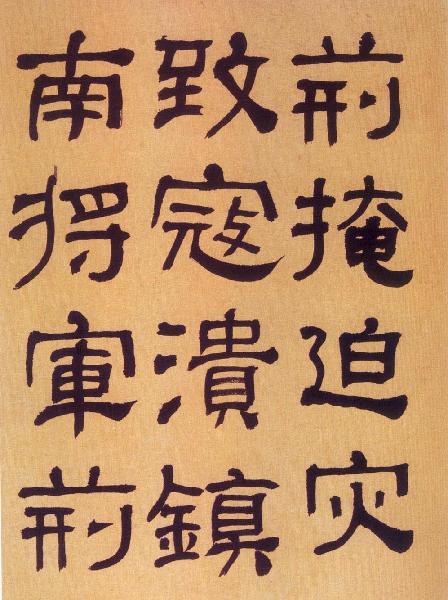 荊掩迫灾
致寇潰鎮
南将軍荊